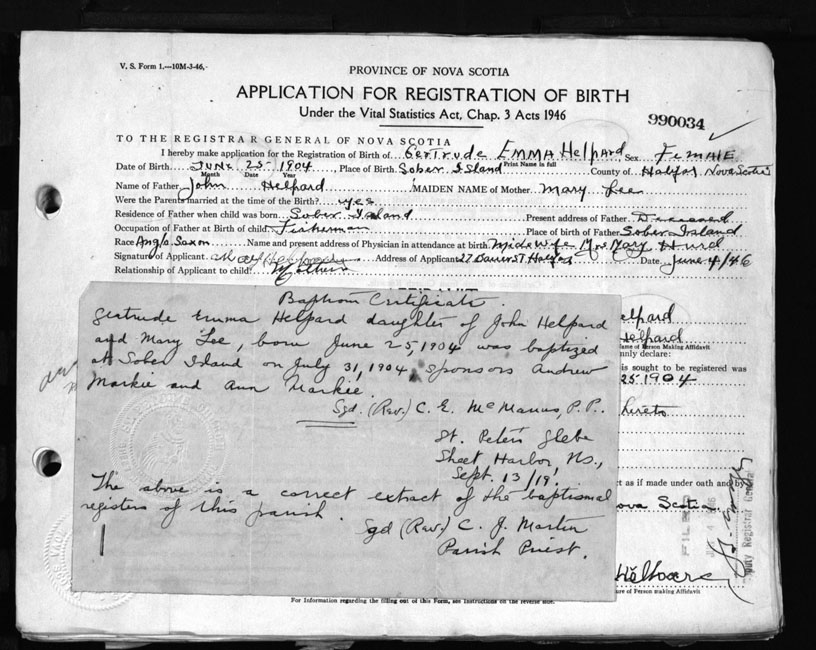 V. S. Form 1.—10M-3-46.
PROVINCE OF NOVA SCOTIA
APPLICATION FOR REGISTRATION OF BIRTH
Under the Vital Statistics Act, Chap. 3 Acts 1946
990034
TO THE REGISTRAR GENERAL OF NOVA SCOTIA
I hereby make application for the Registration of Birth of Gertrude EMMA Helpard, Sex FEMALE
Print Name in full
Date of Birth JUNE 25 1904, Place of Birth Sober Island County of Halifax Nova Scotia
Month Date Year
Name of Father John Helpard MAIDEN NAME of Mother Mary Lee
Were the Parents married at the time of the Birth? yes
Residence of Father when child was born Sober Island Present address of Father Deceased
Occupation of Father at Birth of child Fisherman Place of birth of Father Sober Island
Race Anglo Saxon Name and present address of Physician in attendance at birth Midewife Mrs Mary Hurd
Signature of Applicant Address of Applicant 27 ST Halifax Date June 4/46
Relationship of Applicant to child? Mother
Baptism Certificate.
Gertrude Emma Helpard daughter of John Helpard
and Mary Loe, born June 25, 1904 was baptized
at Sober Island on July 31, 1904, sponsors Andrew
Markie and Ann Markie.
Sgd. (Rev.) C. E. McManus, P.P.
St. Peter's Glebe
Sheet Harbor, N.S.,
Sept. 13/19.
The above is a correct extract of the baptismal
registers of this parish.
Sgd (Rev.) C. J. Martin
Parish Priest.
elpard
Helpard
Name of Person Making Affidavit
nly declare:
is sought to be registered was
25 1904
ct as if made under oath and by
ova Scotia
FILED
Deputy Registrar General
Helpard
ure of Person making Affidavit
For Information regarding the filling out of this Form, see Instructions on the reverse side.